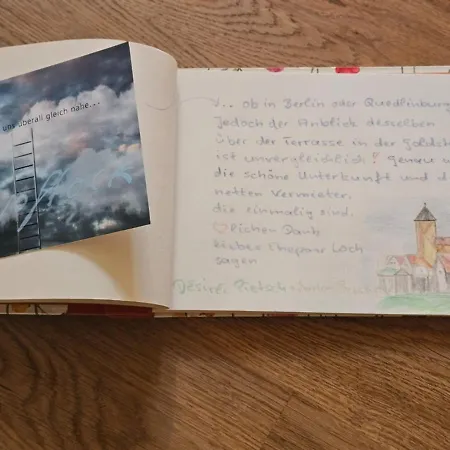 uns überall gleich nahe...
... ob in Berlin oder Quedlinburg
Jedoch der Anblick desselben
über der Terrasse in der Goldst
ist unvergleichlich! Genau w
die schöne Unterkunft und d
netten Vermieter,
die einmalig sind.
♡lichen Dank
liebes Ehepaar Loch
sagen
Désireé Pietsch